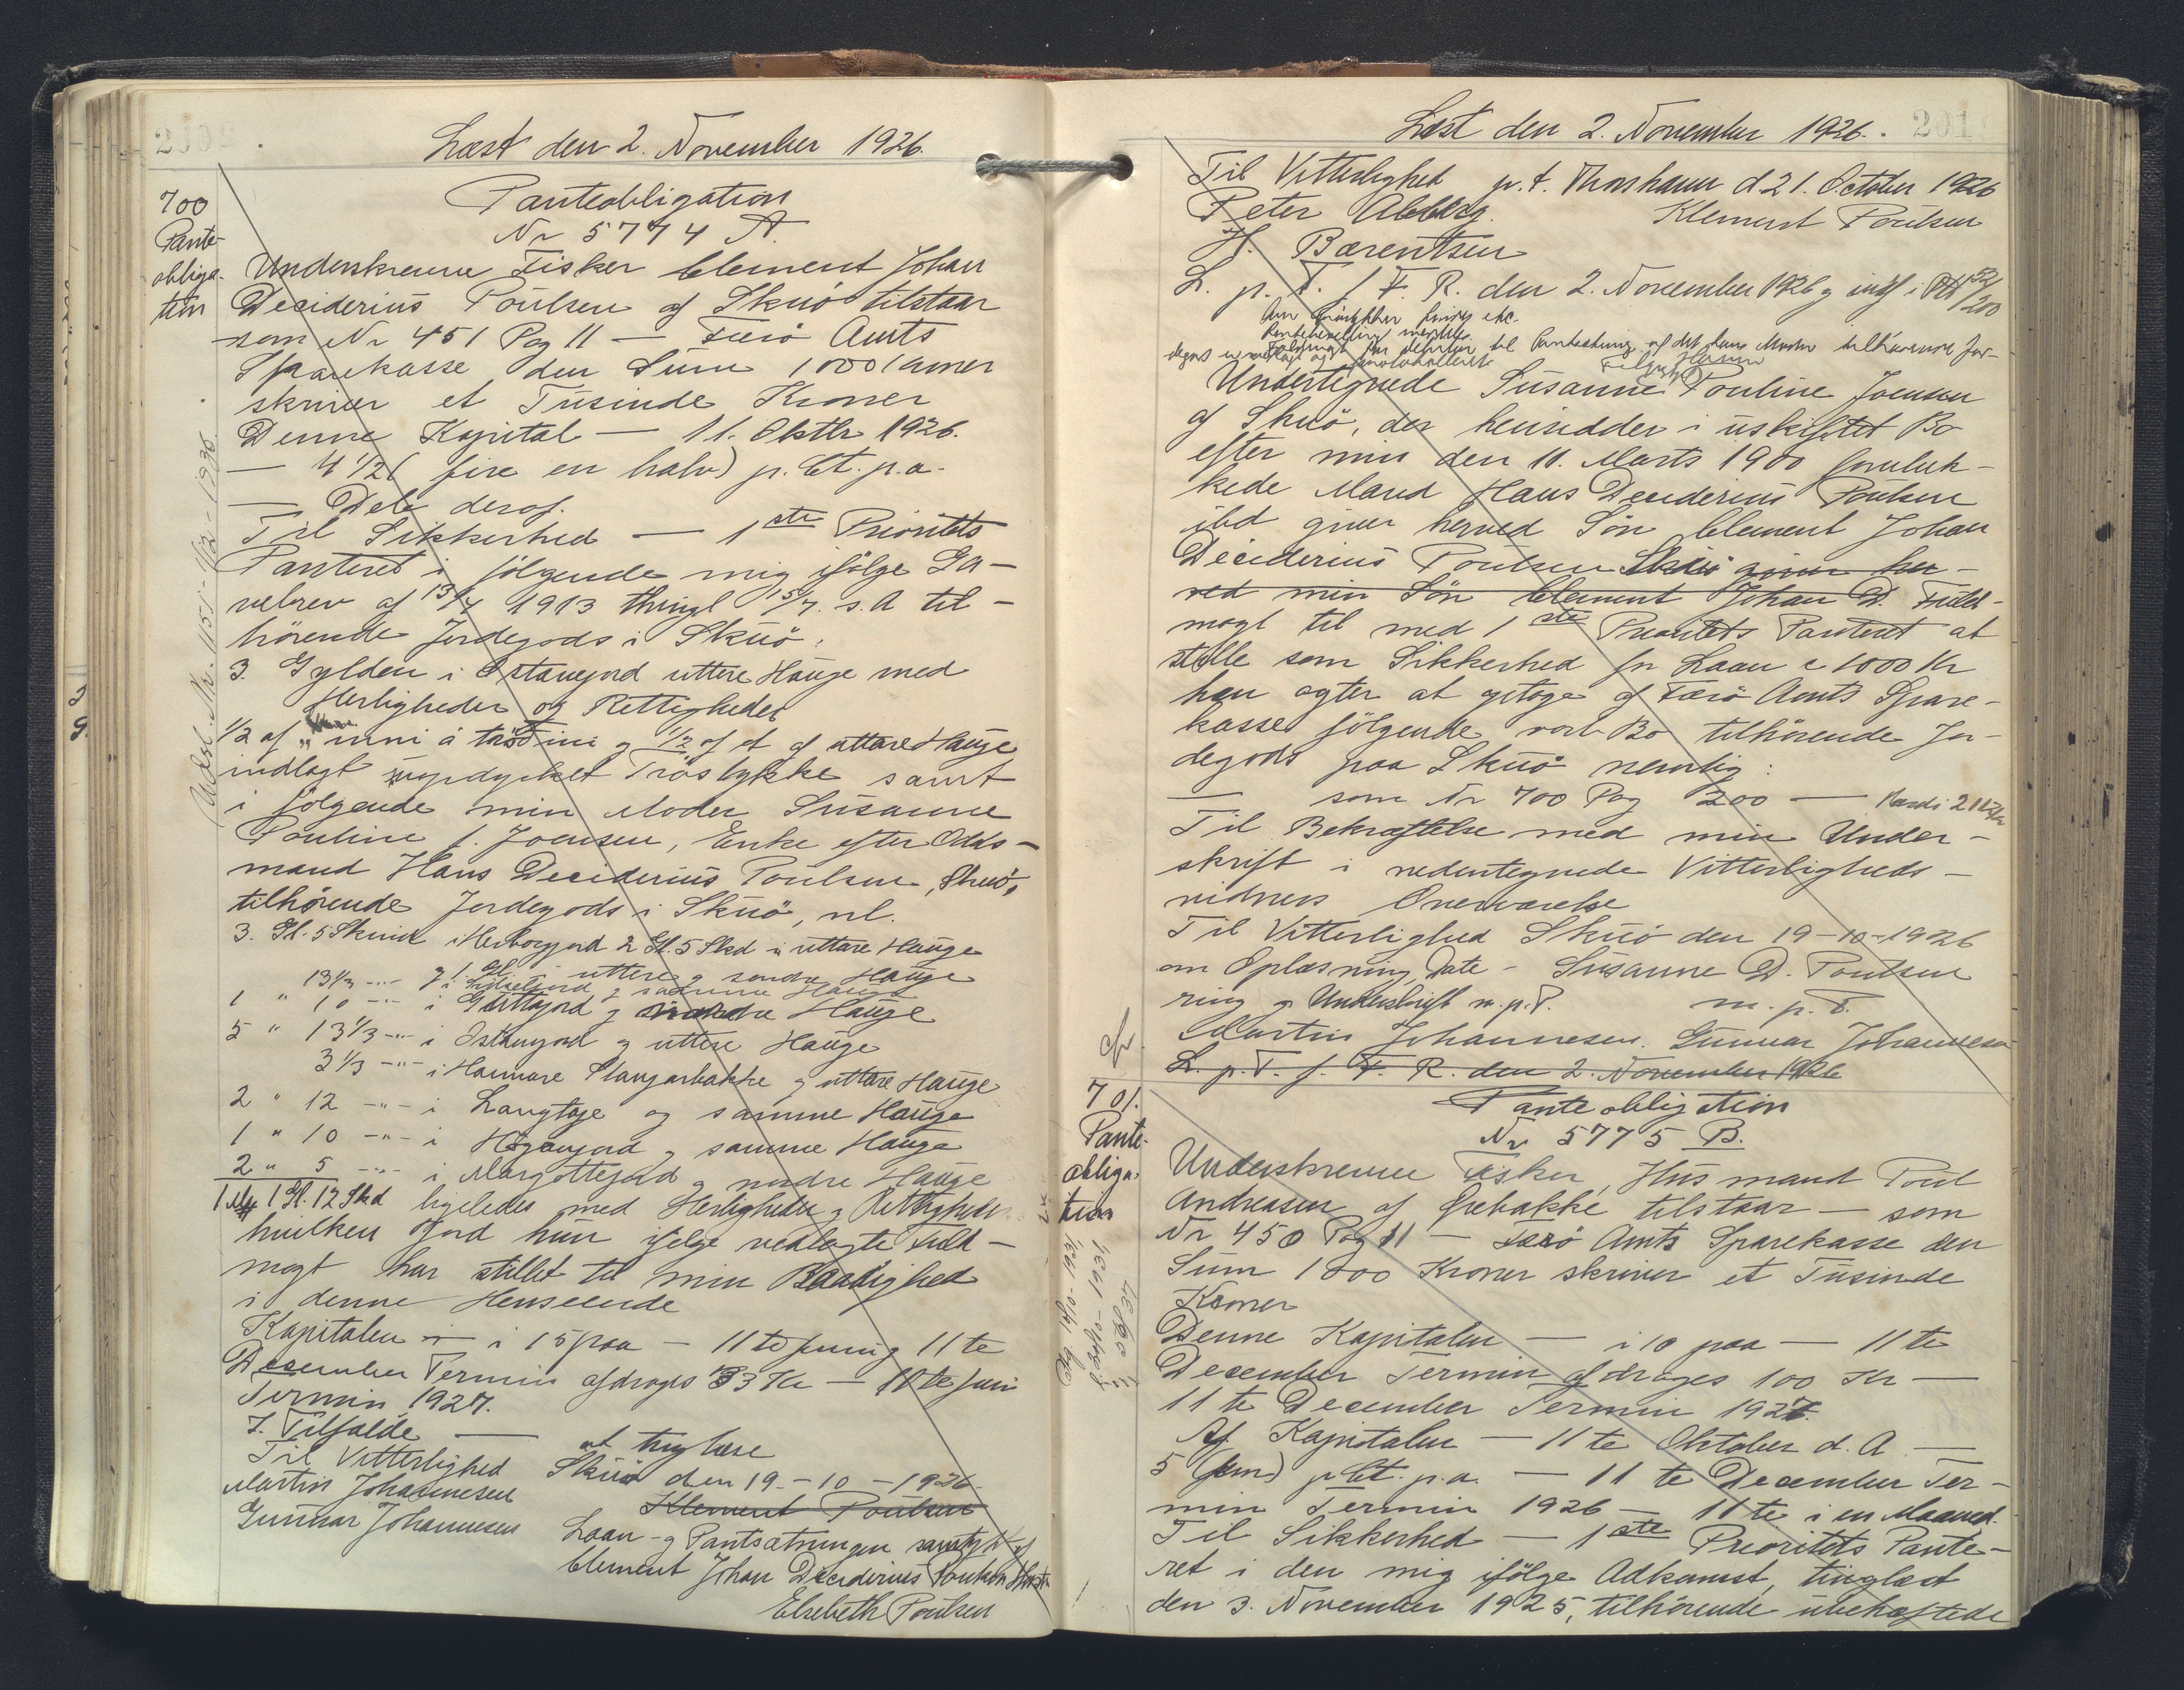 Læst den 2. November 1926.
700
Pante-
obliga-
tion
Panteobligation
Nr 5774 A.
Underskrevne Fisker Clement Johan
Deciderius Poulsen af Skuö tilstaar
som Nr 451 Pag 11 — Færö Amts
Sparekasse den Sum 1000 Kroner
skriver et Tusinde Kroner
Denne Kapital — 11. Oktbr 1926.
— 4 1/2 ( fire en halv) p. Ct. p.a.
— Dele deraf.
Til Sikkerhed — 1ste Prioritets
Panteret i følgende mig ifølge Ga-
vebrev af 13/7 1913 thingl 15/7. s.A til-
hörende Jordegods i Skuö:
3. Gylden i Østanejord uttere Hauge med
Herligheder og Rettigheder
1/2 af " inni á tröðini og 1/2 af et af uttare Hauge
indlagt nyopdyrket Tröstykke samt
i følgende min Moder Susanne
Pouline f. Joensen, Enke efter Odels-
mand Hans Deciderius Poulsen, Skuö,
tilhörende Jordegods i Skuö, nl.
3. Gl. 5 Skind i Heiborgjord 2 Gl. 5 Skd i uttare Hauge
13 1/3 -"- og 1 Gl. i uttere og söndre Hauge
1 " 10 -"- i Gittisjord og samme Hauge
5 " 13 1/3 -"- i Østanjord og uttere Hauge
3 1/3 -"- i Hannare Slangarbakke og uttare Hauge
2 " 12 -"- i Langtoje og samme Hauge
1 " 10 -"- i Höganjord og samme Hauge
2 " 5 -"- i Margottejord og nördre Hauge
1 Mk 1 Gl. 12 Skd ligeledes med Herligheder og Rettigheder
hvilken Jord hun ifølge vedlagte Fuld-
magt har stillet til min Raadighed
i denne Henseende
Kapitalen — i 15 paa — 11te Juni og 11te
December Termin afdrages 33 Kr — 11te Juni
Termin 1927.
I Tilfælde — at tinglæse
Til Vitterlighed Skuö den 19-10-1926
Martin Johannesen Klement Poulsen
Gunnar Johannesen Laan- og Pantsætningen samtykkes af
Clement Johan Deciderius Poulsens Hustru
Elsebeth Poulsen
Læst den 2. November 1926.
Til Vitterlighed p. t. Thorshavn d 21. October 1926
Peter Klement Poulsen
H. Bærentsen
L. p. T. f F. R. den 2. November 1926 og indf i
Undertegnede Susanne Pouline Joensen
af Skuö, der hensidder i uskiftet Bo
efter min den 10. Marts 1900 forulyk-
kede Mand Hans Deciderius Poulsen
ibd giver herved Søn Clement Johan
Deciderius Poulsen Skuö giver her-
ved min Søn Clement Johan D. Fuld-
magt til med 1ste Prioritets Panteret at
stille som Sikkerhed for Laan c 1000 Kr
han agter at optage af Færö Amts Spare-
kasse følgende vort Bo tilhørende Jor-
degods paa Skuö nemlig:
— som Nr 700 Pag 200 — Værdi
Til Bekræftelse med min Under-
skrift i nedentegnede Vitterligheds-
vidners Overværelse
Til Vitterlighed Skuö den 19-10-1926
om Oplæsning, Date- Susanne D. Poulsen
ring og Underskrift m.p.P. m. p. P.
Martin Johannesen. Gunnar Johannesen
L. p. T. f. F. R. den 2. November 1926
701.
Pante-
obliga-
tion
Panteobligation
Nr 5775 B.
Underskrevne Fisker, Husmand Poul
Andreasen af Grebakke tilstaar — som
Nr 450 Pag 11 — Færö Amts Sparekasse den
Sum 1000 Kroner skriver et Tusinde
Kroner
Denne Kapitalen — i 10 paa — 11te
December Termin afdrages 100 Kr —
11te December Termin 1927.
Af Kapitalen — 11te Oktober d. A. —
5 (fem) p Ct. p.a. — 11te December Ter-
min Termin 1926 — 11te i en Maaned.
Til Sikkerhed — 1ste Prioritets Pante-
ret i den mig ifølge Adkomst, tinglæst
den 3. November 1925, tilhørende ubehæftede